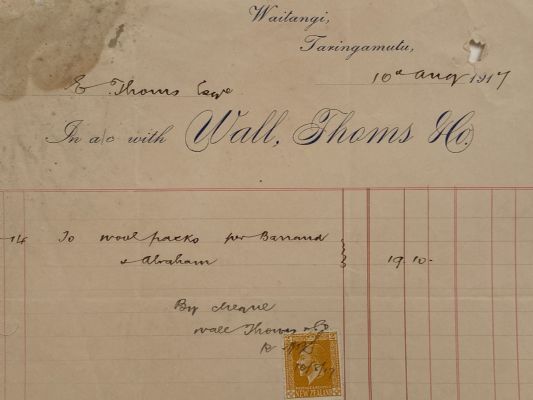 Waitangi,
Taringamutu,
10th Aug 1917
E Thoms Esqr
In a/c with Wall, Thoms & Co.
14 To wool packs per Barraud
& Abraham 19. 10 -
By cheque
Wall Thoms & Co
10/8/17
NEW ZEALAND